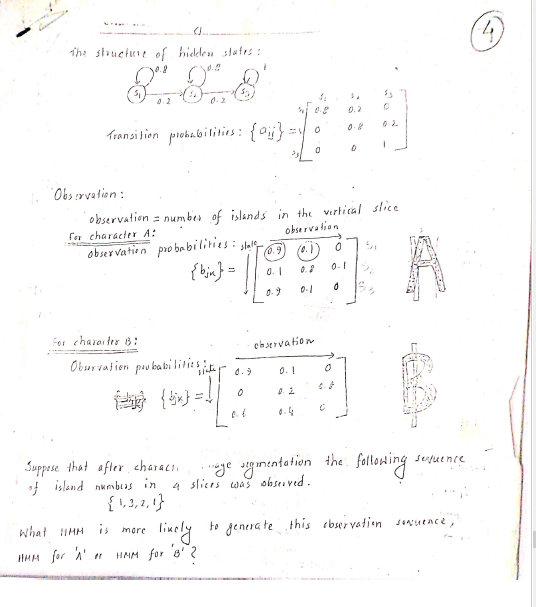 4
The structure of hidden states :
0.8 0.8 1
S1 S2 S3
0.2 0.2
S1 S2 S3
S1 0.8 0.2 0
Transition probabilities : {aij} = 0 0.8 0.2
S3 0 0 1
Observation :
observation = number of islands in the vertical slice
For character A :
observation
observation probabilities : state 0.9 0.1 0 S1
{bjk} = 0.1 0.8 0.1 S2
0.9 0.1 0 S3
A
For character B :
observation
Observation probabilities : state 0.9 0.1 0
{bjk} = 0 0.2 0.8
0.6 0.4 0
B
Suppose that after segmentation the following sequence
of island numbers in 4 slices was observed.
{1,3,2,1}
What HMM is more likely to generate this observation sequence,
HMM for 'A' or HMM for 'B' ?